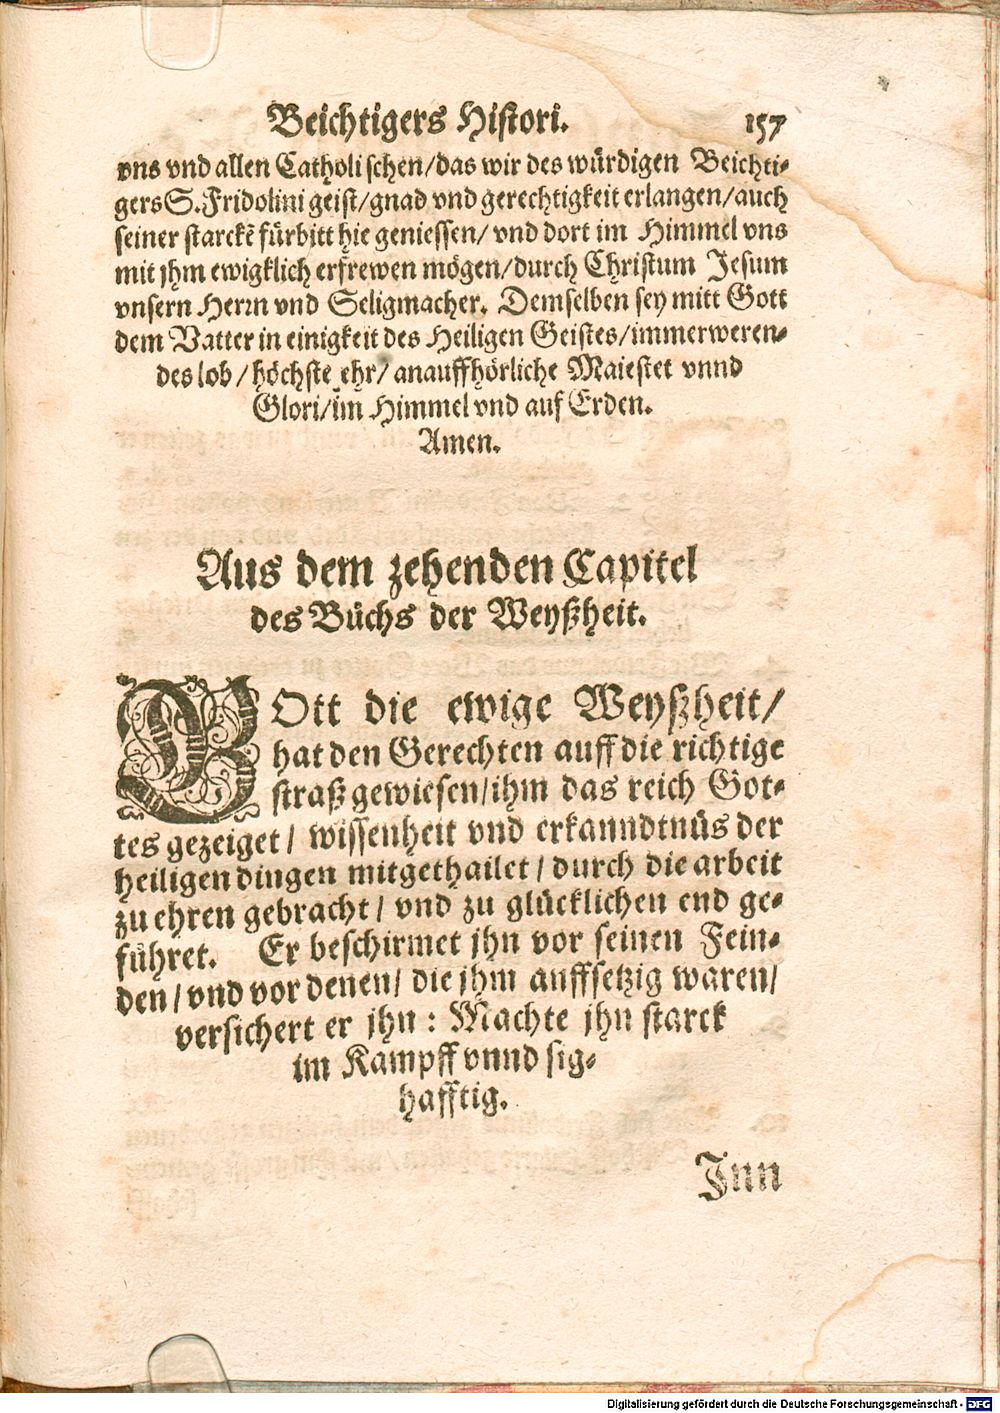 Beichtigers Histori. 157
vns vnd allen Catholischen/das wir des würdigen Beichti-
gers S. Fridolini geist/gnad vnd gerechtigkeit erlangen/auch
seiner starckẽ fürbitt hie geniessen/ vnd dort im Himmel vns
mit jhm ewigklich erfrewen mögen/durch Christum Jesum
vnsern Herrn vnd Seligmacher. Demselben sey mitt Gott
dem Vatter in einigkeit des Heiligen Geistes/immerweren-
des lob/ höchste ehr/ anauffhörliche Maiestet vnnd
Glori/im Himmel vnd auf Erden.
Amen.
Aus dem zehenden Capitel
des Bůchs der Weyßheit.
GOtt die ewige Weyßheit/
hat den Gerechten auff die richtige
straß gewiesen/ihm das reich Got-
tes gezeiget/ wissenheit vnd erkanndtnüs der
heiligen dingen mitgethailet/ durch die arbeit
zu ehren gebracht/ vnd zu glücklichen end ge-
führet. Er beschirmet jhn vor seinen Fein-
den/vnd vor denen/ die jhm auffsetzig waren/
versichert er jhn: Machte jhn starck
im Kampff vnnd sig-
hafftig.
Inn
Digitalisierung gefördert durch die Deutsche Forschungsgemeinschaft - DFG